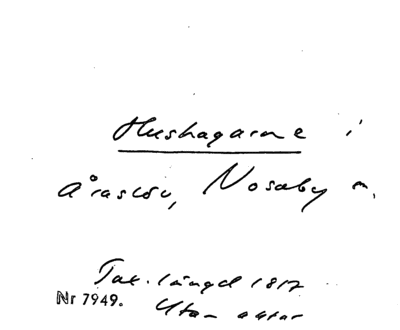 Hushagarne i
Åraslöv, Nosaby n.
Tax. längd 1812
Nr 7949. Utan